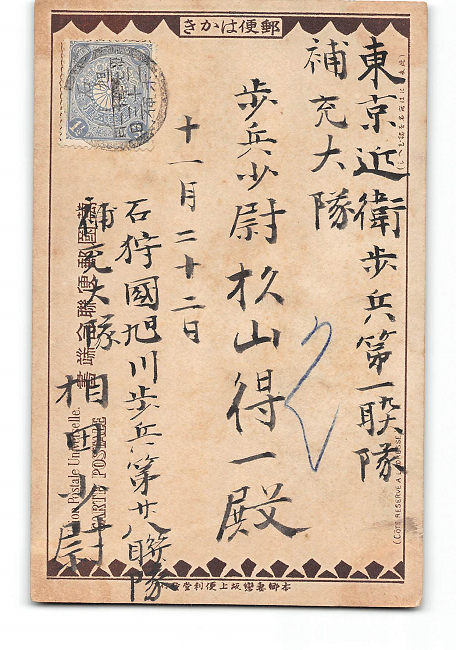 郵便はかき
東京近衛歩兵第一聯隊
補充大隊
歩兵少尉杉山得一殿
十一月二十二日
石狩國旭川歩兵第廿八聯隊
補充大隊
相田少尉
萬國郵便聯合端書
Union Postale Universelle.
CARTE POSTALE
(CÔTÉ RÉSERVÉ A L'ADRESSE)